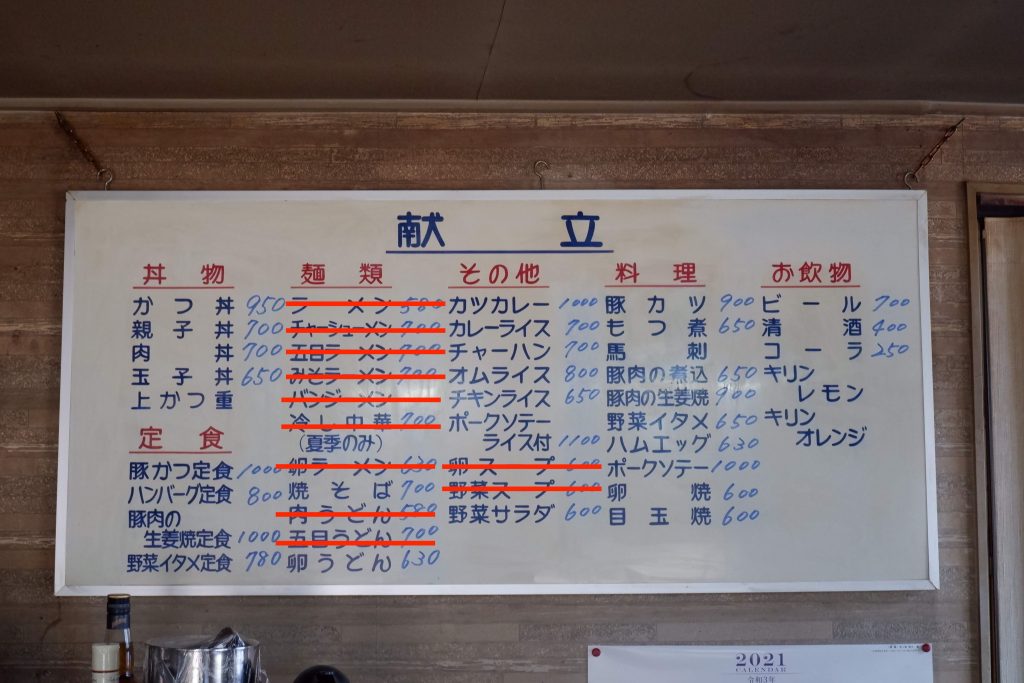 献立
丼物
かつ丼 950
親子丼 700
肉丼 700
玉子丼 650
上かつ重
定食
豚かつ定食 1000
ハンバーグ定食 800
豚肉の
生姜焼定食 1000
野菜イタメ定食 780
麺類
ラーメン 580
チャーシューメン 700
五目ラーメン 700
みそラーメン 700
バンジーメン
冷し中華 700
(夏季のみ)
卵ラーメン 630
焼そば 700
肉うどん 580
五目うどん 700
卵うどん 630
その他
カツカレー 1000
カレーライス 700
チャーハン 700
オムライス 800
チキンライス 650
ポークソテー
ライス付 1100
卵スープ 600
野菜スープ 600
野菜サラダ 600
料理
豚カツ 900
もつ煮 650
馬刺
豚肉の煮込 650
豚肉の生姜焼 900
野菜イタメ 650
ハムエッグ 630
ポークソテー 1000
卵焼 600
目玉焼 600
お飲物
ビール 700
清酒 400
コーラ 250
キリン
レモン
キリン
オレンジ
2021
CALENDAR
令和3年